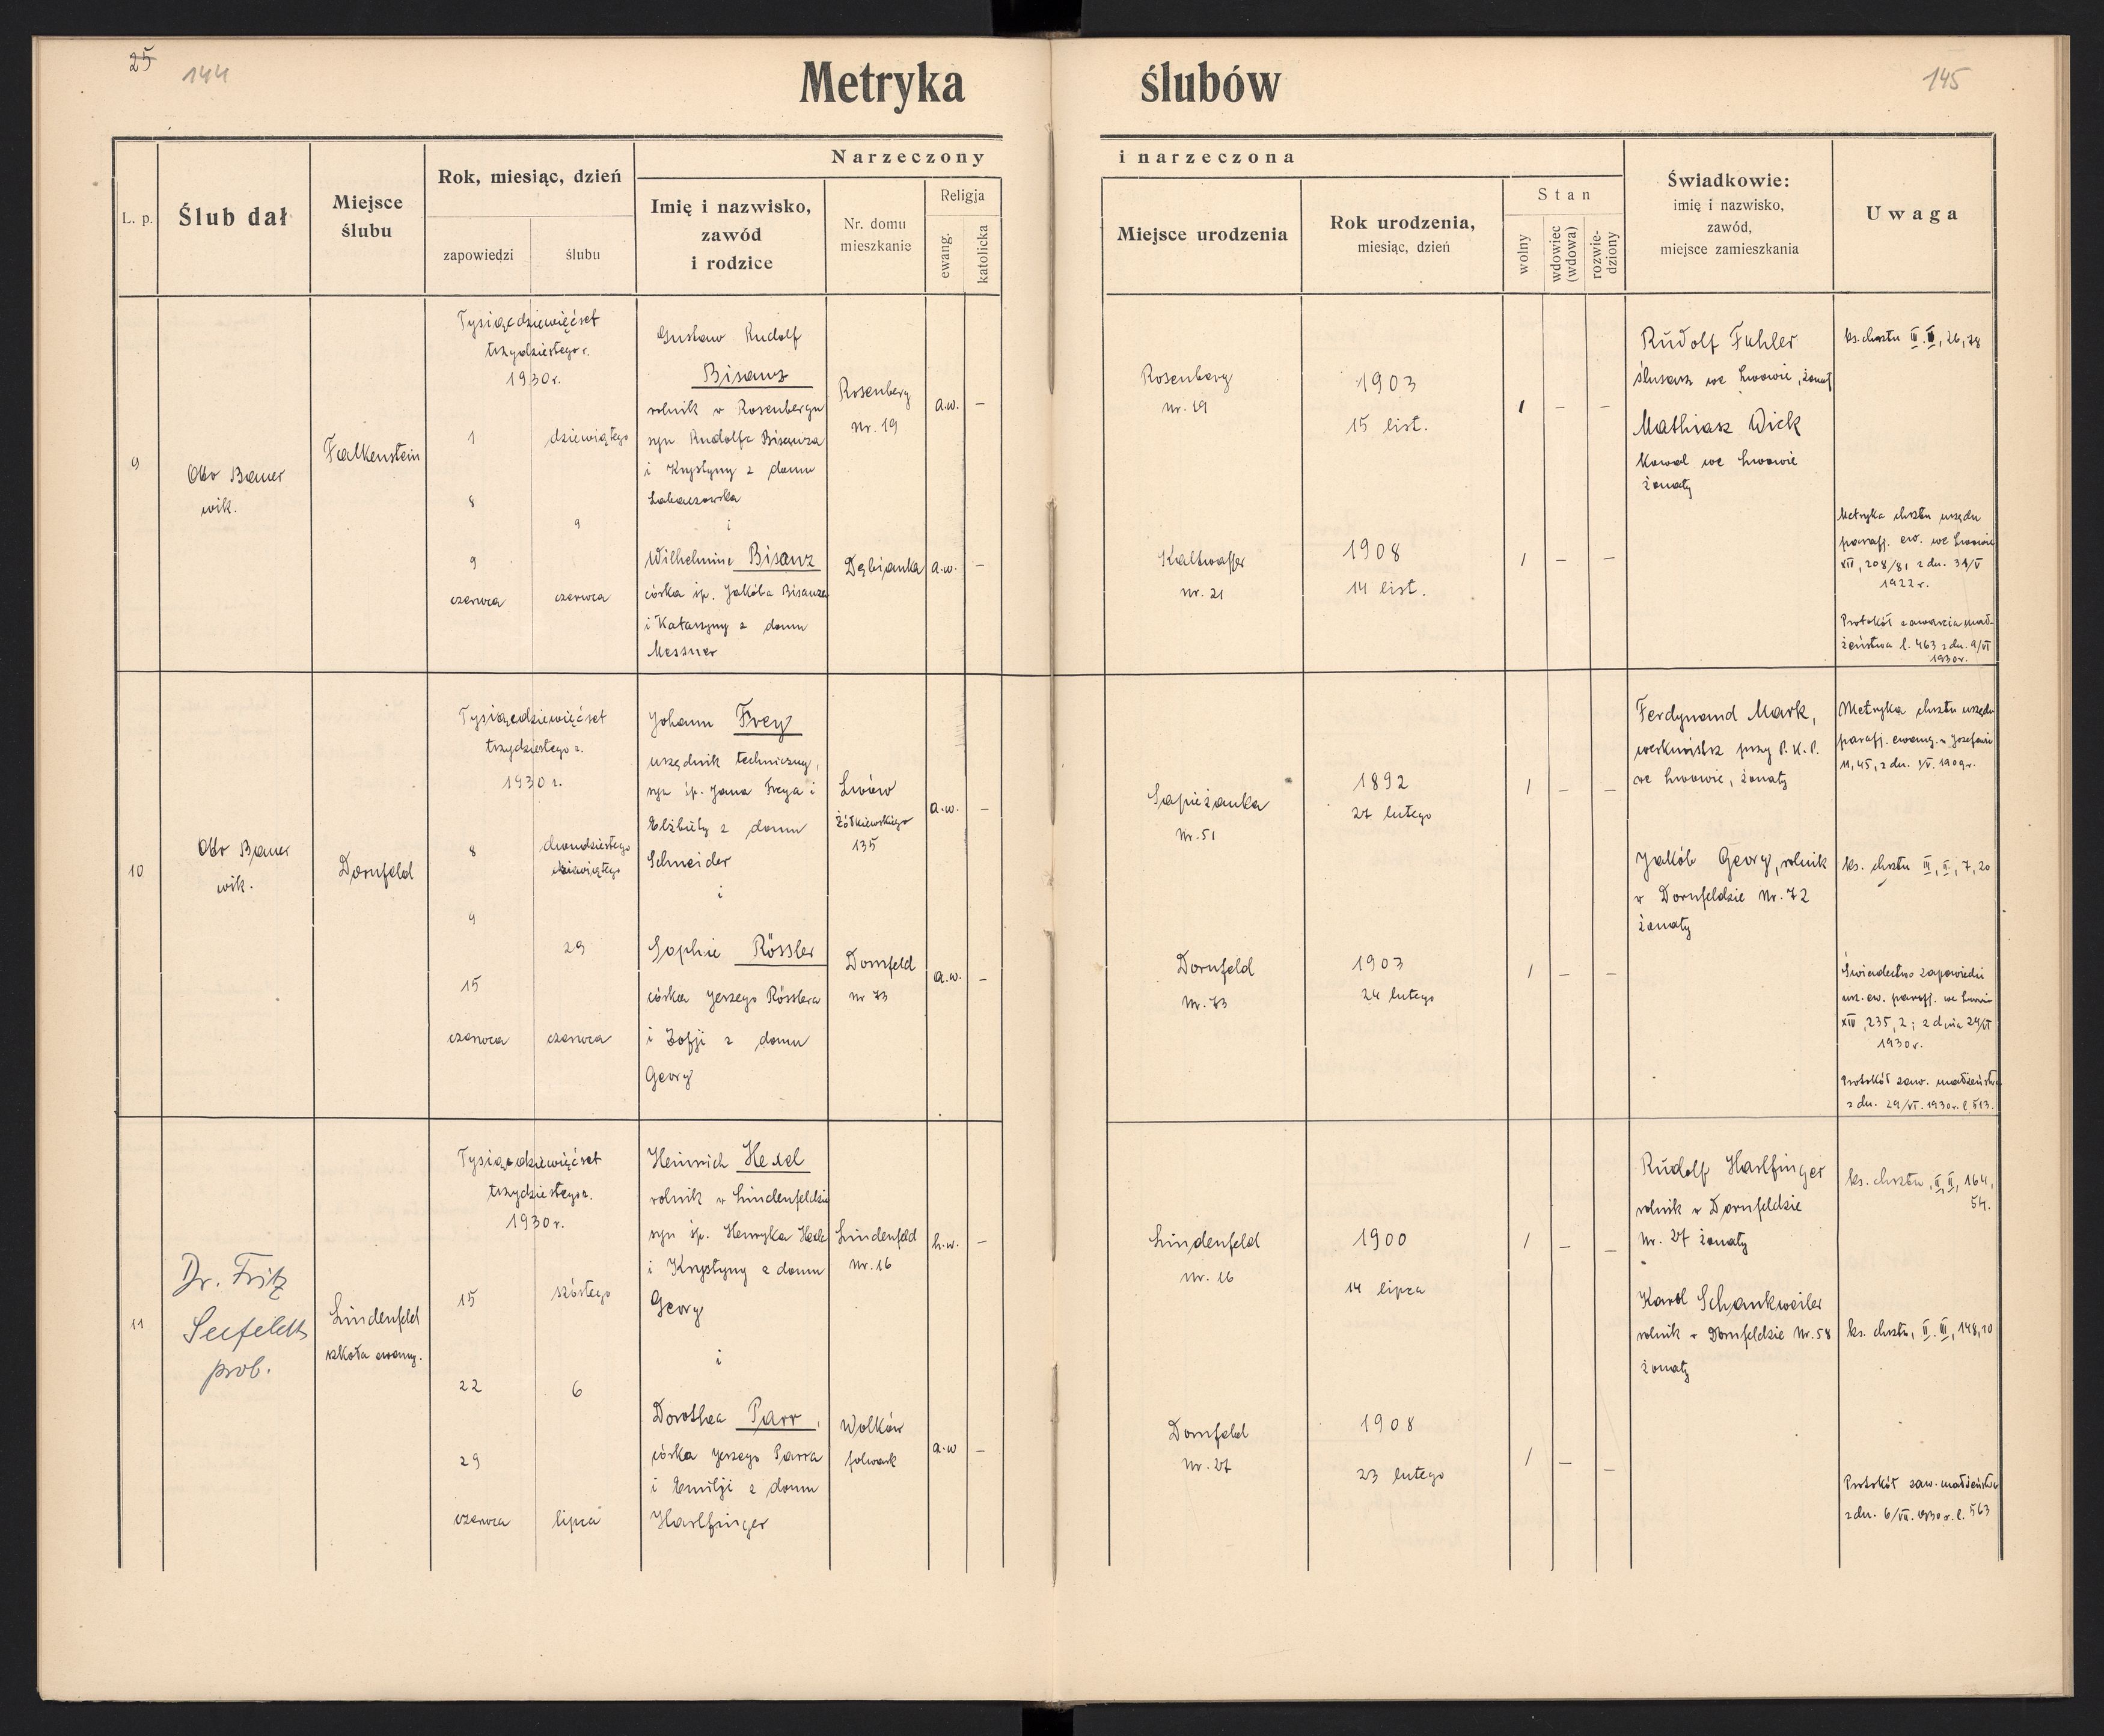 25 144
Metryka ślubów
145
L. p.
Ślub dał
Miejsce
ślubu
Rok, miesiąc, dzień
zapowiedzi
ślubu
Narzeczony
Imię i nazwisko,
zawód
i rodzice
Nr. domu
mieszkanie
Religja
ewang.
katolicka
i narzeczona
Miejsce urodzenia
Rok urodzenia,
miesiąc, dzień
Stan
wolny
wdowiec
(wdowa)
rozwie-
dziony
Świadkowie:
imię i nazwisko,
zawód,
miejsce zamieszkania
Uwaga
9
Otto Bauer
wik.
Falkenstein
Tysiącdziewięćset
trzydziestego r.
1930 r.
1
8
9
czerwca
dziewiątego
9
czerwca
Gustaw Rudolf
Bisanz
rolnik w Rosenbergu
syn Rudolfa Bisanza
i Krystyny z domu
i
Wilhelmine Bisanz
córka śp. Jakóba Bisanza
i Katarzyny z domu
Messner
Rosenberg
Nr. 19
Dębianka
a.w. –
a.w. –
Rosenberg
Nr. 19
Kaltwasser
Nr. 21
1903
15 list.
1908
14 list.
1 – –
1 – –
Rudolf Fuhler
ślusarz we Lwowie, żonaty
Mathiasz Wick
Kowal we Lwowie
żonaty
ks. chrztu III. II, 26, 78
Metryka chrztu urzędu
parafj. ew. we Lwowie
XII, 208/81 z dn. 31/V
1922 r.
Protokół zawarcia mał-
żeństwa l. 463 z dn. 9/VI
1930 r.
10
Otto Bauer
wik.
Dornfeld
Tysiącdziewięćset
trzydziestego r.
1930 r.
8
9
15
czerwca
dwudziestego
dziewiątego
29
czerwca
Johann Frey
urzędnik techniczny,
syn śp. Jana Freya i
Elżbiety z domu
Schneider
i
Sophie Rössler
córka Jerzego Rösslera
i Zofji z domu
Georg
Lwów
Żółkiewskiego
135
Dornfeld
nr 73
a.w. –
a.w. –
Sapieżanka
Nr. 51
Dornfeld
Nr. 73
1892
27 lutego
1903
24 lutego
1 – –
1 – –
Ferdynand Mark,
werkmistrz przy P. K. P.
we Lwowie, żonaty
Jakób Georg, rolnik
w Dornfeldzie Nr. 72
żonaty
Metryka chrztu urzędu
parafj. ewang. w
11, 45, z dn. 1/V. 1909 r.
ks. chrztu III, II, 7, 20
Świadectwo zapowiedzi
urz. ew. parafj. we Lwowie
XIV, 235, 2; z dnia 24/VI
1930 r.
Protokół zaw. małżeństwa
z dn. 29/VI. 1930 r. l. 513.
11
Dr. Fritz
Seefeldt
prob.
Lindenfeld
szkoła ewang.
Tysiącdziewięćset
trzydziestego r.
1930 r.
15
22
29
czerwca
szóstego
6
lipca
Heinrich Hexel
rolnik w Lindenfeldzie
syn śp. Henryka Hexla
i Krystyny z domu
Georg
i
Dorothea Parr,
córka Jerzego Parra
i Emilji z domu
Harlfinger
Lindenfeld
Nr. 16
Wolków
folwark
h.w. –
a.w –
Lindenfeld
Nr. 16
Dornfeld
Nr. 27
1900
14 lipca
1908
23 lutego
1 – –
1 – –
Rudolf Harlfinger
rolnik w Dornfeldzie
Nr. 27 żonaty
Karol Schankweiler
rolnik w Dornfeldzie Nr. 58
żonaty
ks. chrztu, II, II, 164,
54.
ks. chrztu, II. III, 148, 10
Protokół zaw. małżeństwa
z dn. 6/VII. 1930 r. l. 563